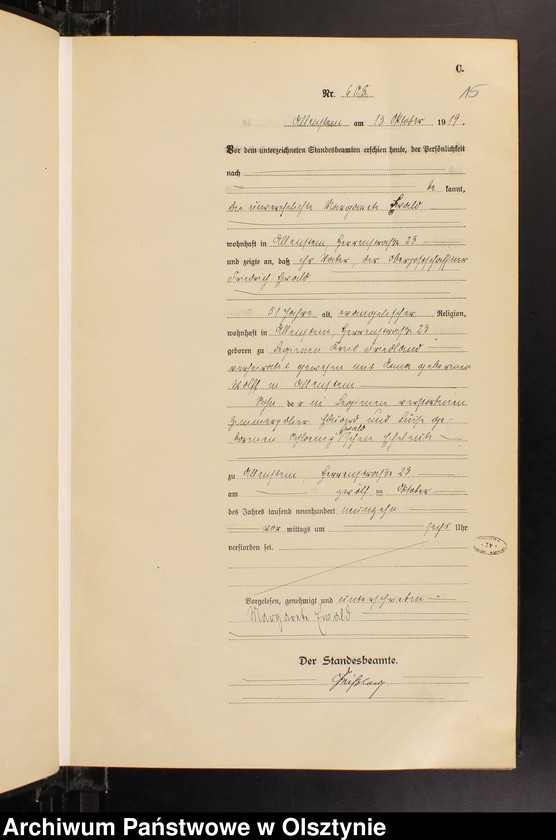 C.
Nr. 608.
15
Allenstein am 13 Oktober 1919.
Vor dem unterzeichneten Standesbeamten erschien heute, der Persönlichkeit
nach
be kannt,
die unverehelichte Margarete Ewald
wohnhaft in Allenstein, Herrenstraße 23
und zeigte an, daß ihr Vater, der Oberpostschaffner
Friedrich Ewald
51 Jahre alt, evangelischer Religion,
wohnhaft in Allenstein, Herrenstraße 23
geboren zu Kreis Friedland
verheiratet gewesen mit geborenen
Wolff in Allenstein
Sohn der in verstorbenen
Eduard und Luise ge-
Ewald
borenen schen Eheleute
zu Allenstein, Herrenstraße 23
am zwölf ten Oktober
des Jahres tausend neunhundert neunzehn
vor mittags um sechs Uhr
verstorben sei.
Vorgelesen, genehmigt und unterschrieben
Margarete Ewald
Der Standesbeamte.
Archiwum Państwowe w Olsztynie